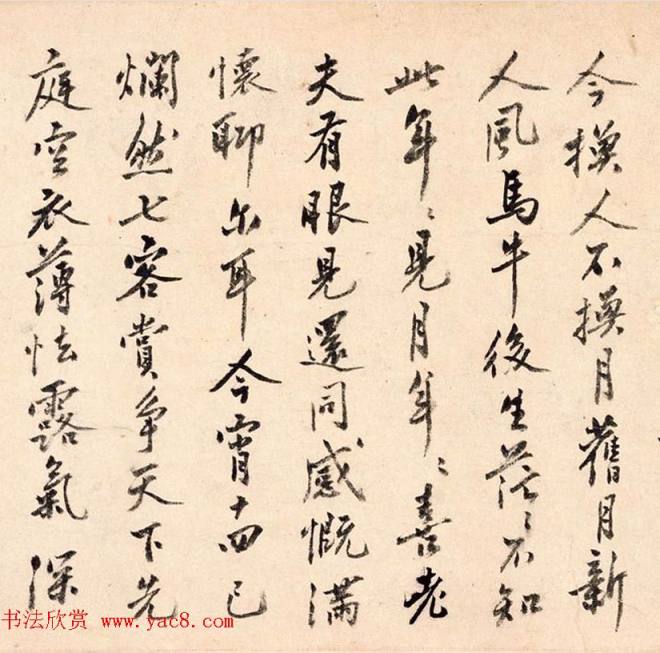 今換人不換月舊月新
人風馬牛後生茫々不知
此年々見月年々喜老
夫有眼見還同感慨滿
懷聊尔耳今宵十四已
爛然七客賞爭天下先
庭空衣薄怯露氣深
书法欣赏 www.yac8.com